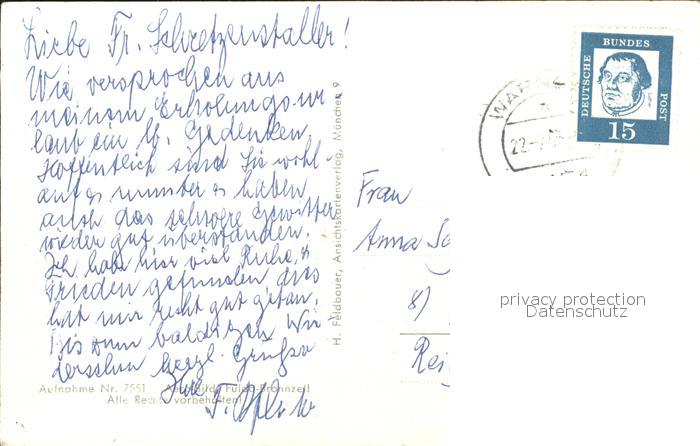 Liebe Fr. Schretzenstaller!
Wie versprochen aus
meinem Erholungsur-
laub ein lb. Gedenken.
Hoffentlich sind Sie wohl-
auf & munter & haben
auch das schwere Gewitter
wieder gut überstanden.
Ich habe hier viel Ruhe &
Frieden gefunden das
hat mir recht gut getan.
Bis zum baldigen Wie-
dersehn herzl. Grüße
Ihre
Aufnahme Nr. 7551
Fulda-Bronnzell
Alle Rechte vorbehalten!
H. Feldbauer, Ansichtskartenverlag, München 9
DEUTSCHE BUNDES POST
15
22.-7.
Frau
Anna Sc
8)
Rei
privacy protection
Datenschutz